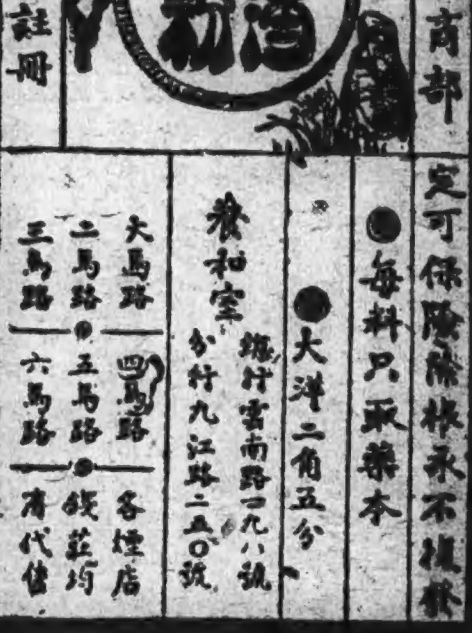 商部
註冊
定可保險除根永不復發
●每料只取藥本
●大洋二角五分
養和室
總行雲南路一九八號
分行九江路二五〇號
大馬路
二馬路
三馬路
四馬路
五馬路
六馬路
各煙店
錢莊均
有代售